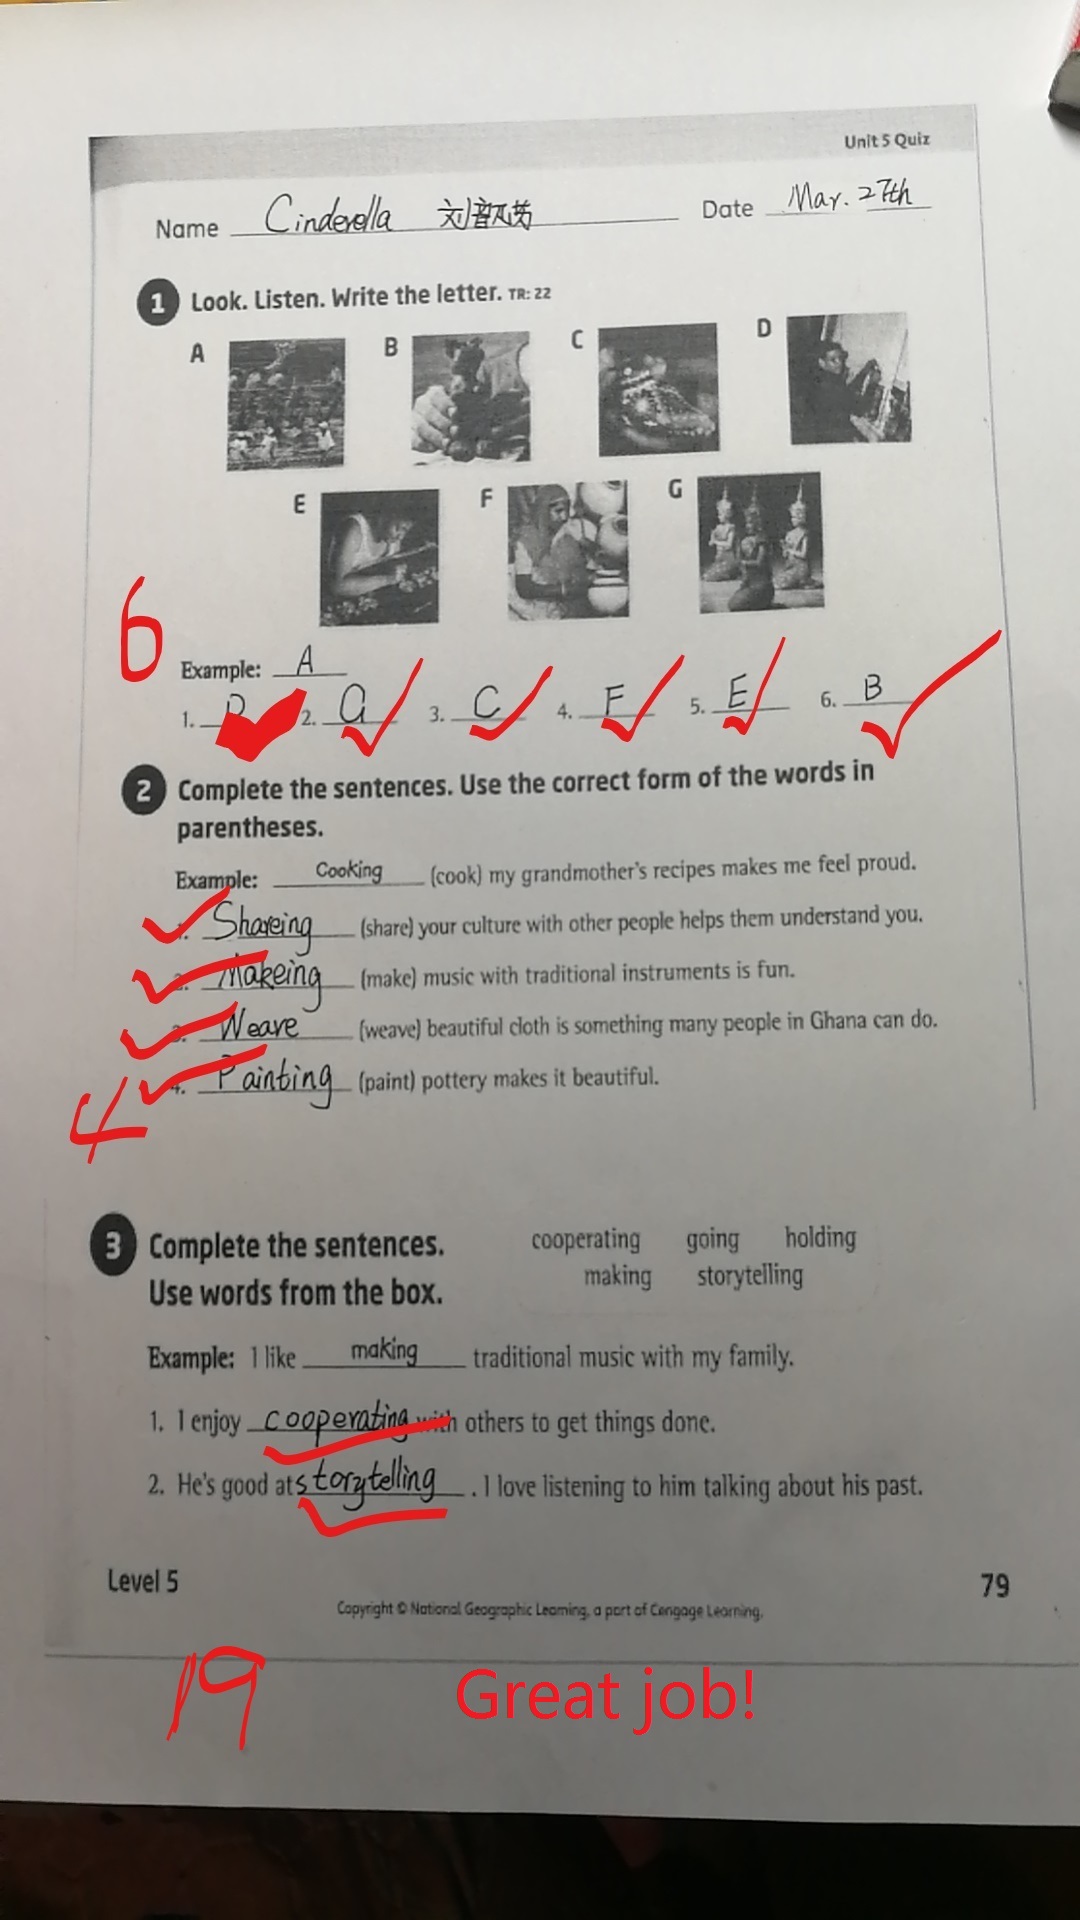 Unit 5 Quiz
Name Cinderella 刘 Date Mar. 27th
1 Look. Listen. Write the letter. TR: 22
A B C D
E F G
6
Example: A
1. D 2. G 3. C 4. F 5. E 6. B
2 Complete the sentences. Use the correct form of the words in
parentheses.
Example: Cooking (cook) my grandmother's recipes makes me feel proud.
1. Shareing (share) your culture with other people helps them understand you.
2. Makeing (make) music with traditional instruments is fun.
3. Weave (weave) beautiful cloth is something many people in Ghana can do.
4. Painting (paint) pottery makes it beautiful.
4
3 Complete the sentences.
Use words from the box.
cooperating going holding
making storytelling
Example: I like making traditional music with my family.
1. I enjoy cooperating with others to get things done.
2. He's good at storytelling . I love listening to him talking about his past.
Level 5
79
Copyright © National Geographic Learning, a part of Cengage Learning.
19
Great job!